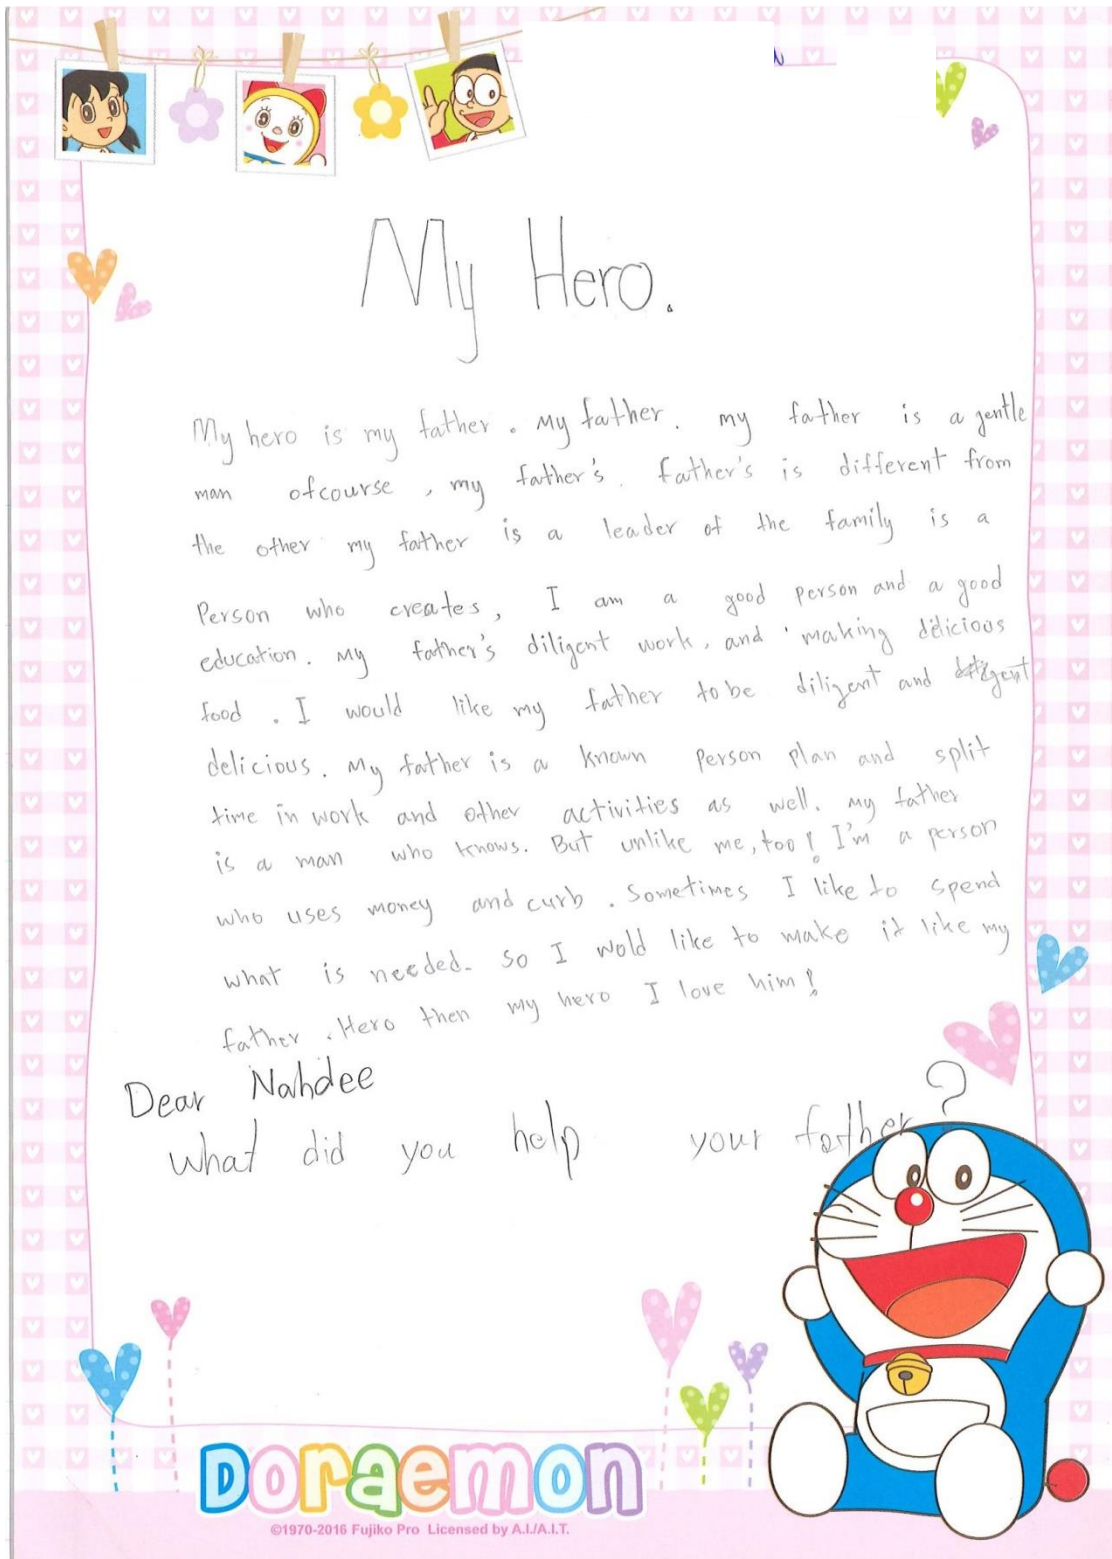 My Hero.
My hero is my father. My father. my father is a gentle
man ofcourse, my father's. father's is different from
the other my father is a leader of the family is a
Person who creates, I am a good person and a good
education. My father's diligent work, and making delicious
food. I would like my father to be diligent and
delicious. My father is a known Person plan and split
time in work and other activities as well. My father
is a man who knows. But unlike me, too! I'm a person
who uses money and curb. Sometimes I like to spend
what is needed. So I wold like to make it like my
father. Hero then my hero I love him!
Dear Nahdee
What did you help your father?
DORAEMON
©1970-2016 Fujiko Pro Licensed by A.I./A.I.T.